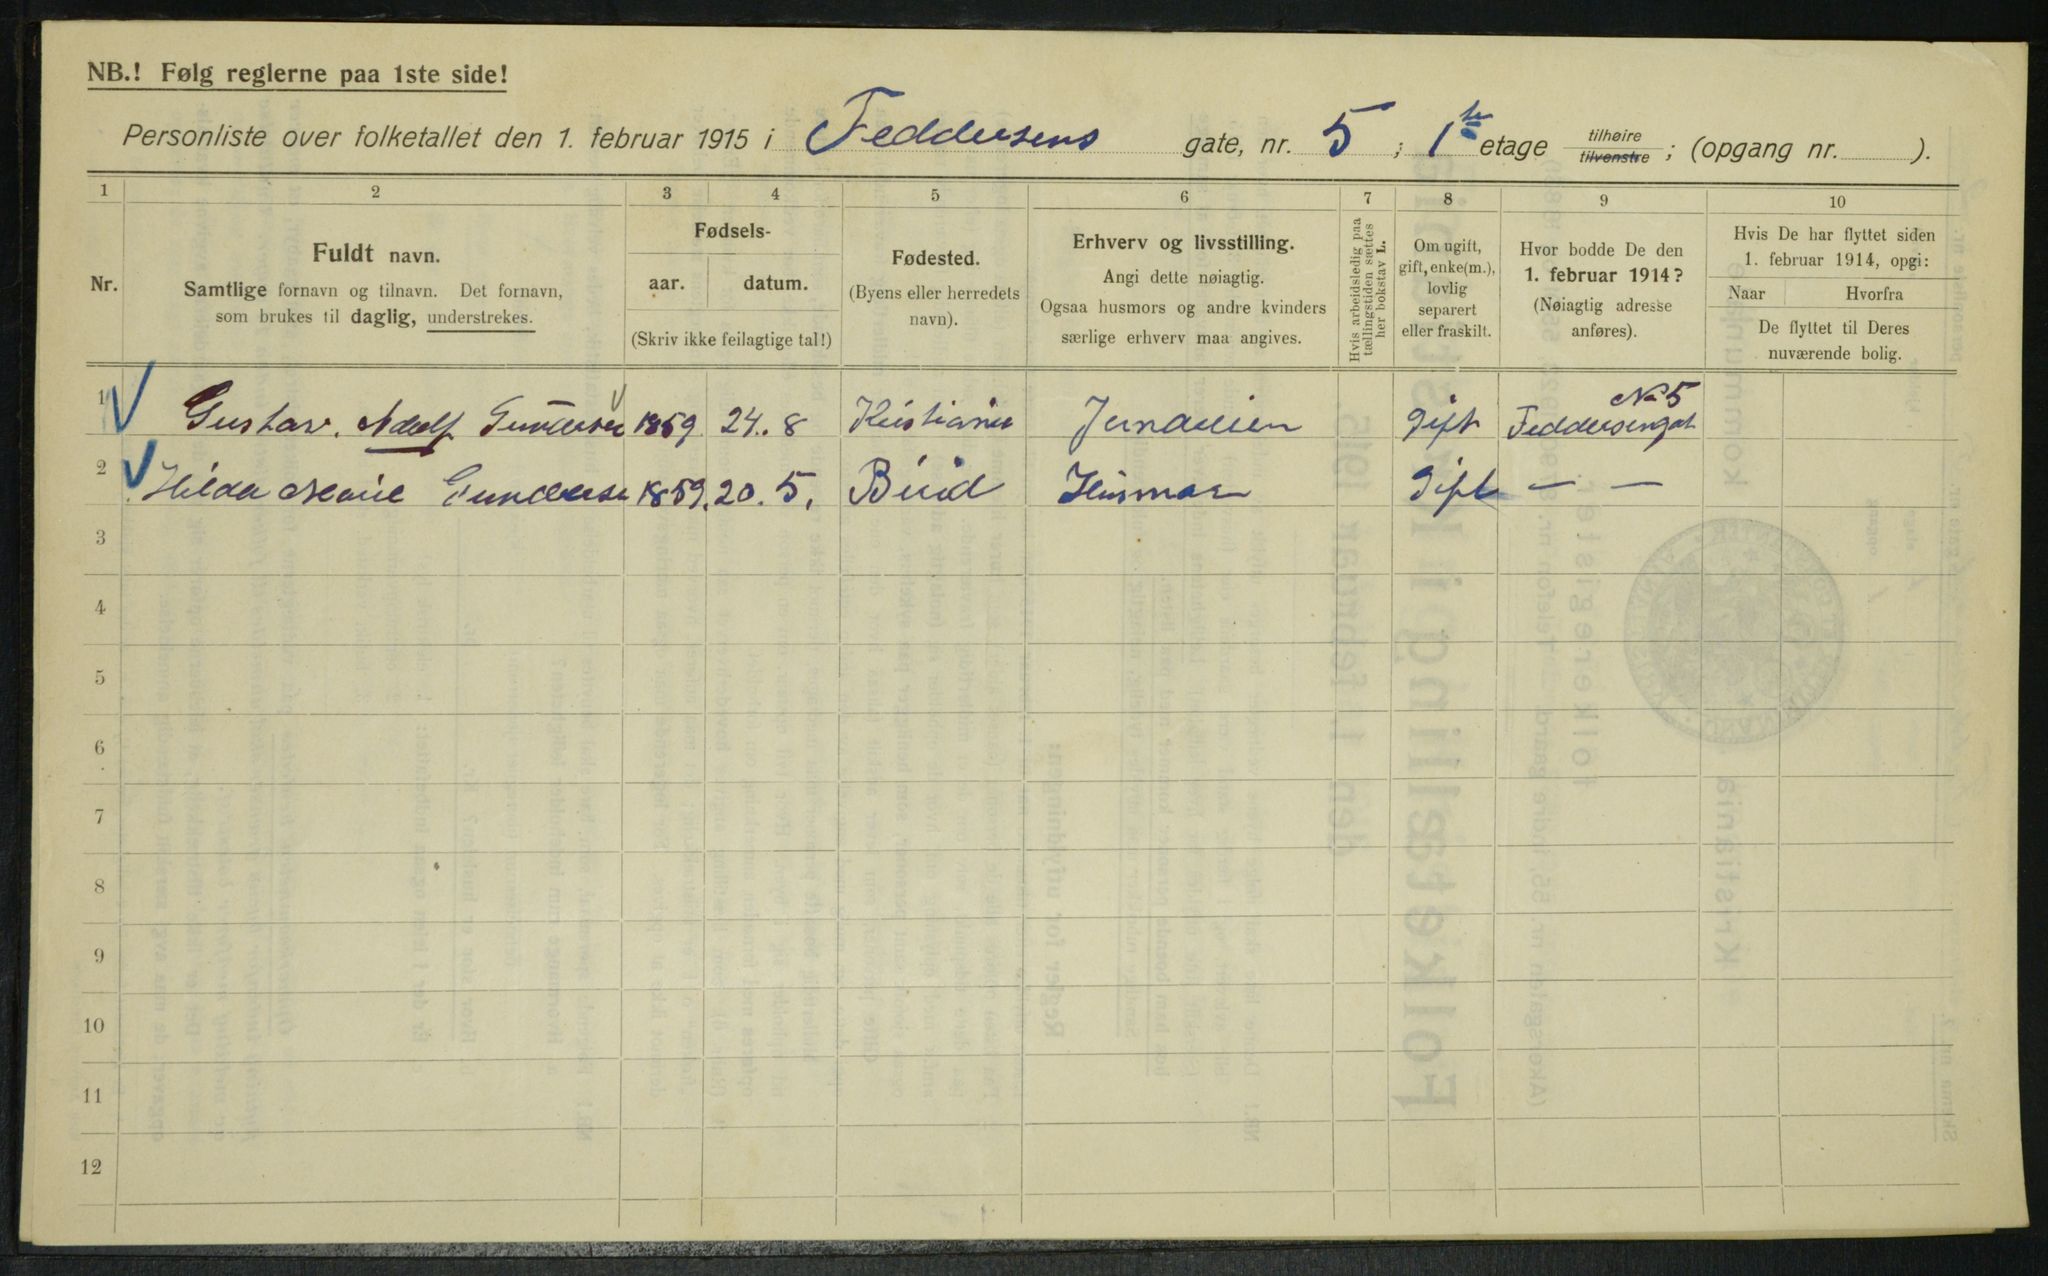 NB.! Følg reglerne paa 1ste side!
Personliste over folketallet den 1. februar 1915 i Feddersens gate, nr. 5 ; 1ste etage tilhøire tilvenstre ; (opgang nr. ).
1 2 3 4 5 6 7 8 9 10
Nr.
Fuldt navn.
Samtlige fornavn og tilnavn. Det fornavn,
som brukes til daglig, understrekes.
Fødsels-
aar. datum.
(Skriv ikke feilagtige tal!)
Fødested.
(Byens eller herredets
navn).
Erhverv og livsstilling.
Angi dette nøiagtig.
Ogsaa husmors og andre kvinders
særlige erhverv maa angives.
Hvis arbeidsledig paa
tællingstiden sættes
her bokstav L.
Om ugift,
gift, enke(m.),
lovlig
separert
eller fraskilt.
Hvor bodde De den
1. februar 1914?
(Nøiagtig adresse
anføres).
Hvis De har flyttet siden
1. februar 1914, opgi:
Naar Hvorfra
De flyttet til Deres
nuværende bolig.
1 Gustav. Adolf Gundersen 1859 24. 8 Kristiania Gift No 5 Feddersengat
2 Hilda Marie Gundersen 1859. 20. 5. Biri Husmor Gift — —
3
4
5
6
7
8
9
10
11
12